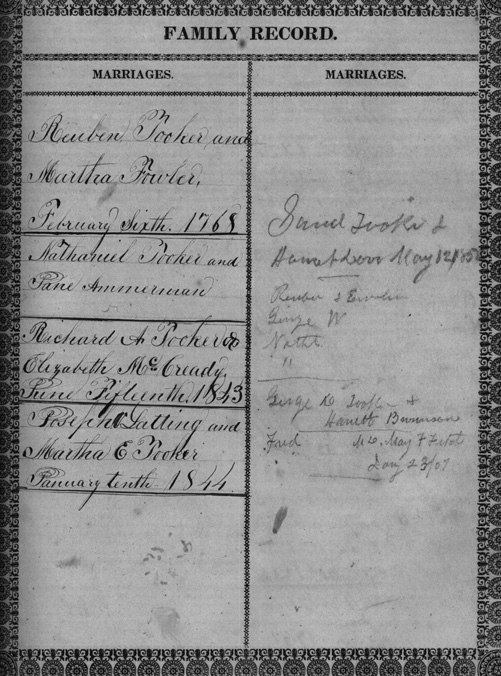 FAMILY RECORD.
MARRIAGES.
Reuben Tooker and
Martha Fowler,
February Sixth. 1768
Nathaniel Tooker and
Jane Ammerman
Richard A Tooker &
Elizabeth McCready,
June Fifteenth, 1843
Joseph Latting and
Martha E Tooker
January tenth 1844
MARRIAGES.
&
May 12
Reuben &
George W
"
George
Harriett
Fred May
Jany 23/07